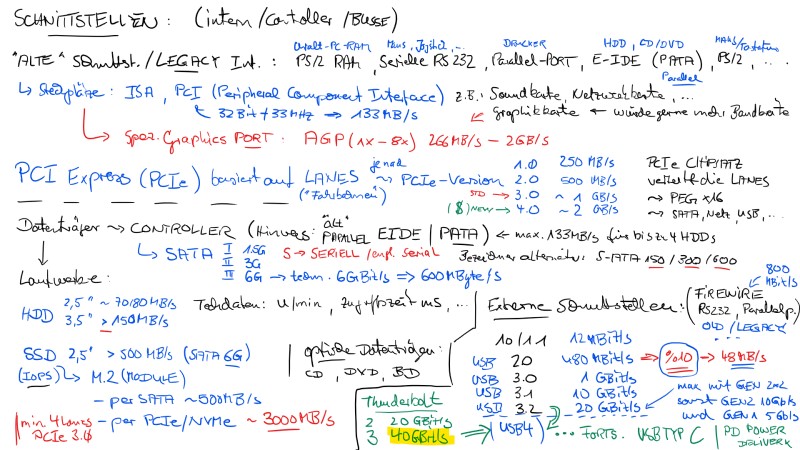 SCHNITTSTELLEN: (intern/Controller/BUSSE)
Uralt-PC-RAM Maus, Joystick, ... DRUCKER HDD, CD/DVD MAUS/Tastatur
"ALTE" Schnittst./LEGACY Int.: PS/2 RAM, Serielle RS232, Parallel-PORT, E-IDE (PATA), PS/2, ...
Parallel
↳ Steckplätze: ISA, PCI (Peripheral Component Interface) z.B.: Soundkarte, Netzwerkkarte, ...
32Bit + 33MHz → 133MB/s Graphikkarte ← würde gerne mehr Bandbreite
↳ Spez. Graphics PORT: AGP (1x - 8x) 266MB/s - 2GB/s
PCI Express (PCIe) basiert auf LANES je nach PCIe-Version
("Fahrbahnen")
1.0 250 MB/s
2.0 500 MB/s
STD → 3.0 ~ 1 GB/s
($) NEW → 4.0 ~ 2 GB/s
PCIe CHIPSATZ
verteilt die LANES
↝ PEG: x16
↝ SATA, Netz, USB, ...
Datenträger ↝ CONTROLLER (Hinweis: "alt" PARALLEL EIDE | PATA) ← max. 133MB/s für bis zu 4 HDDs
↳ SATA I 1,5G S → SERIELL / engl. Serial Bezeichner alternativ: S-ATA 150/300/600
II 3G
III 6G → techn. 6GBit/s ⇒ 600MByte/s
Laufwerke:
HDD 2,5" ~ 70/80MB/s
3,5" > 150MB/s
Techdaten: U/min, Zugriffszeit ms, ...
SSD 2,5" > 500MB/s (SATA 6G)
(IOPS) ↳ M.2 (MODULE)
- per SATA ~500MB/s
min. 4 Lanes PCIe 3.0 - per PCIe/NVMe ~ 3000MB/s
optische Datenträger:
CD, DVD, BD
Externe Schnittstellen:
800 MBit/s
(FIREWIRE
RS232, Parallelp.
OLD/LEGACY
...
1.0/1.1 12MBit/s
USB 2.0 480 MBit/s → %10 → 48MB/s
USB 3.0
USB 3.1 10 GBit/s
USB 3.2 20 GBit/s
max mit GEN 2x2
sonst GEN2 10Gb/s
und GEN1 5Gb/s
Thunderbolt
2 20GBit/s
3 40GBit/s ⇒ (USB4) ... FORTS. USB TYP C | PD POWER DELIVERY